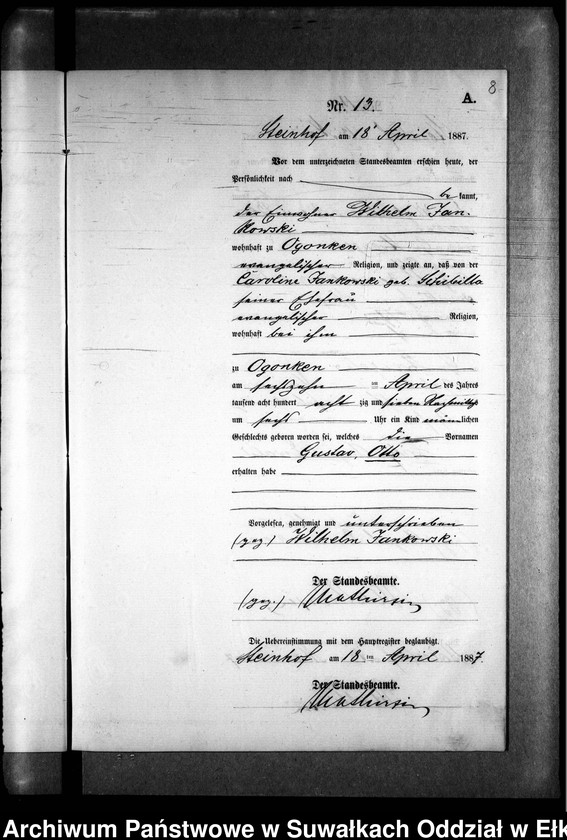 8
A.
Nr. 13.
Steinhof am 18 April 1887.
Vor dem unterzeichneten Standesbeamten erschien heute, der
Persönlichkeit nach
be kannt,
der Einwohner Wilhelm Jan-
kowski
wohnhaft zu Ogonken
evangelischer Religion, und zeigte an, daß von der
Caroline Jankowski geb. Schibilla
seiner Ehefrau
evangelischer Religion,
wohnhaft bei ihm
zu Ogonken
am sechszehn ten April des Jahres
tausend acht hundert acht zig und sieben Nachmittags
um sechs Uhr ein Kind männlichen
Geschlechts geboren worden sei, welches die Vornamen
Gustav, Otto
erhalten habe
Vorgelesen, genehmigt und unterschrieben
(gez) Wilhelm Jankowski
Der Standesbeamte.
(gez.)
Die Uebereinstimmung mit dem Hauptregister beglaubigt.
Steinhof am 18 ten April 1887.
Der Standesbeamte.
Archiwum Państwowe w Suwałkach Oddział w Ełk